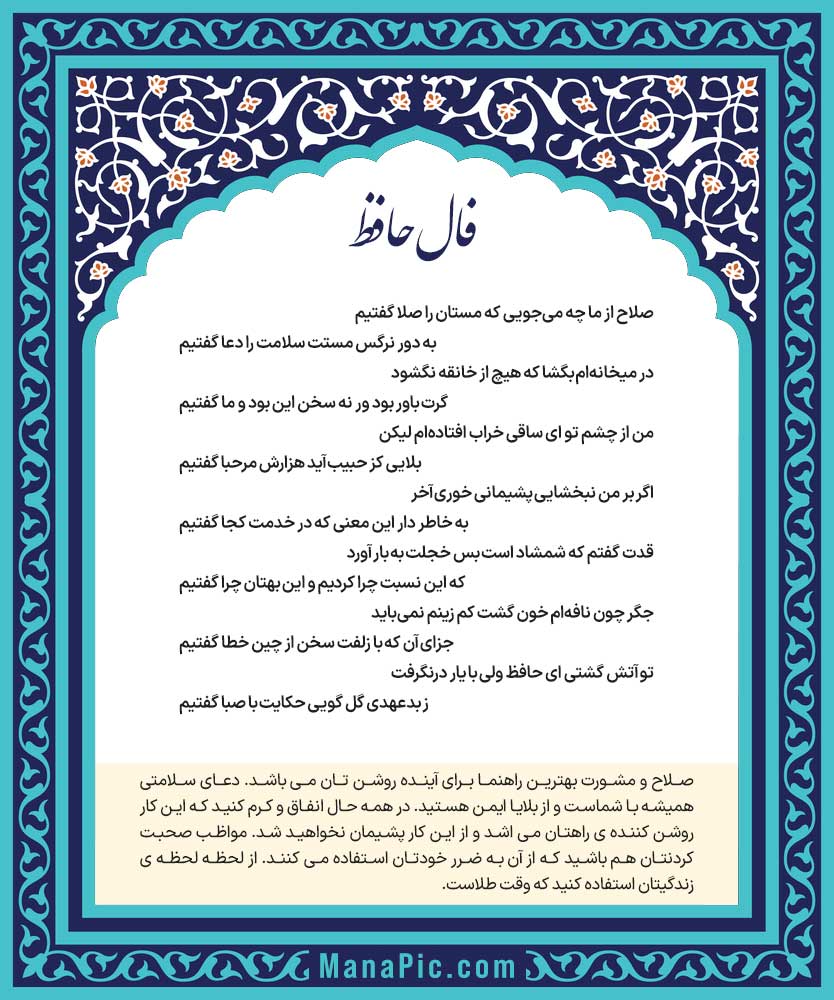 فال حافظ
صلاح از ما چه می‌جویی که مستان را صلا گفتیم
به دور نرگس مستت سلامت را دعا گفتیم
در میخانه‌ام بگشا که هیچ از خانقه نگشود
گرت باور بود ور نه سخن این بود و ما گفتیم
من از چشم تو ای ساقی خراب افتاده‌ام لیکن
بلایی کز حبیب آید هزارش مرحبا گفتیم
اگر بر من نبخشایی پشیمانی خوری آخر
به خاطر دار این معنی که در خدمت کجا گفتیم
قدت گفتم که شمشاد است بس خجلت به بار آورد
که این نسبت چرا کردیم و این بهتان چرا گفتیم
جگر چون نافه‌ام خون گشت کم زینم نمی‌باید
جزای آن که با زلفت سخن از چین خطا گفتیم
تو آتش گشتی ای حافظ ولی با یار درنگرفت
ز بدعهدی گل گویی حکایت با صبا گفتیم
صلاح و مشورت بهترین راهنما برای آینده روشن تان می باشد. دعای سلامتی
همیشه با شماست و از بلایا ایمن هستید. در همه حال انفاق و کرم کنید که این کار
روشن کننده ی راهتان می اشد و از این کار پشیمان نخواهید شد. مواظب صحبت
کردنتان هم باشید که از آن به ضرر خودتان استفاده می کنند. از لحظه لحظه ی
زندگیتان استفاده کنید که وقت طلاست.
ManaPic.com